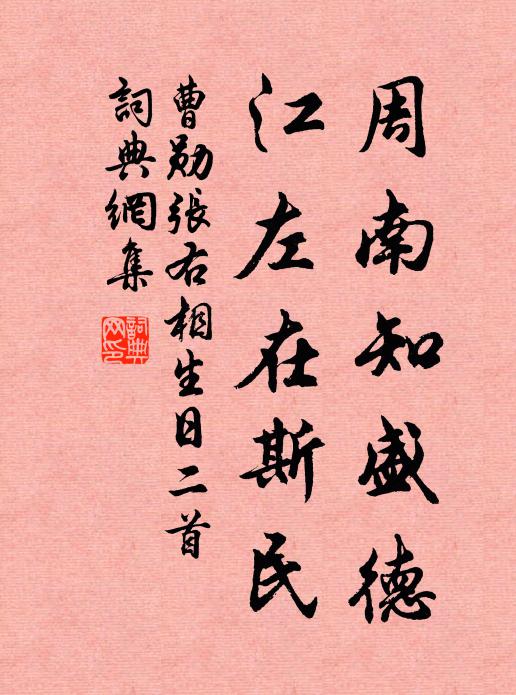 周南知盛德
江左在斯民
曹勛張右相生日二首
詞典網集
詞典網印